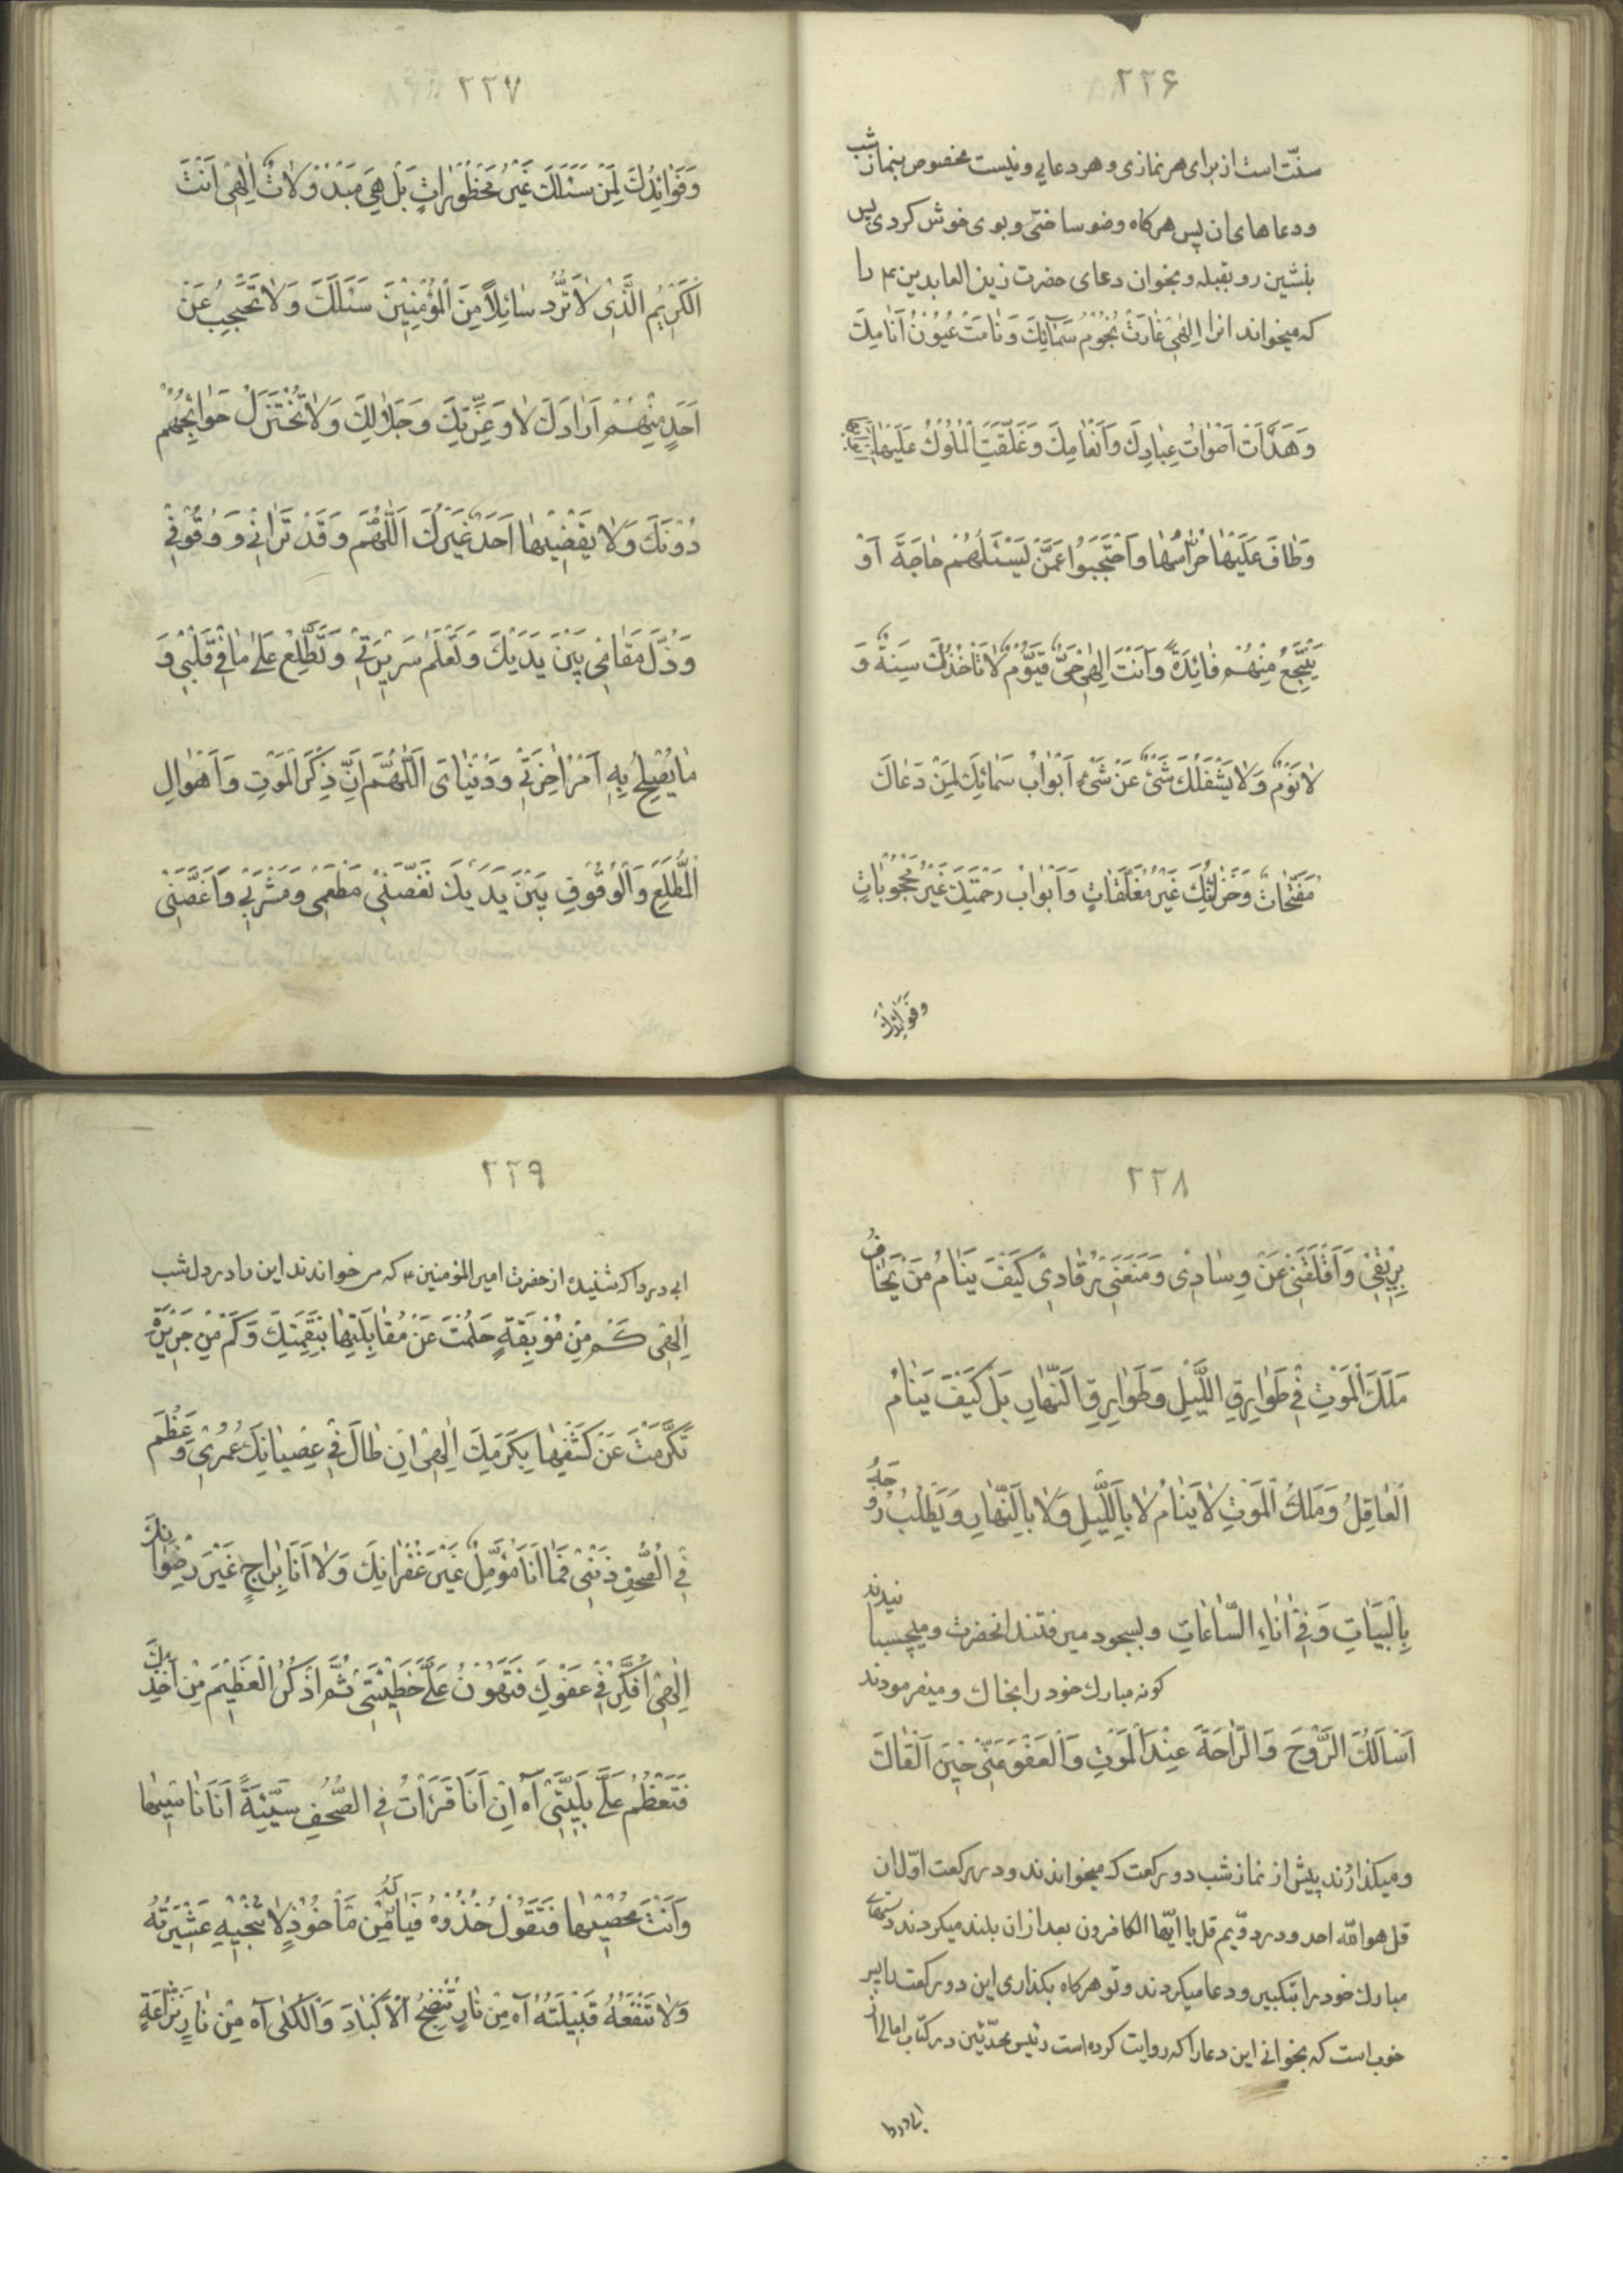 ۲۲۶
سنّت است از برای هر نمازی و هر دعایی و نیست مخصوص بنماز شب
و دعاهای ان پس هرکاه وضو ساختی و بوی خوش کردی پس
بنشین رو بقبله و بخوان دعای حضرت زین العابدین عم را
که میخواند انرا اِلٰهی غارَتْ نُجُومُ سَمٰائِكَ وَ نٰامَتْ عُیُوْنُ اَنٰامِكَ
وَ هَدَاَتْ اَصْوٰاتُ عِبٰادِكَ وَ اَنْعٰامِكَ وَ غَلَّقَتِ الْمُلُوكُ عَلَیْهٰا
وَ طٰافَ عَلَیْهٰا حُرّٰاسُهٰا وَ احْتَجَبُوا عَمَّنْ یَسْئَلُهُمْ حٰاجَةً اَوْ
یَنْتَجِعُ مِنْهُمْ فٰائِدَةً وَ اَنْتَ اِلٰهی حَیٌّ قَیُّوْمٌ لٰا تَاْخُذُكَ سِنَةٌ وَ
لٰا نَوْمٌ وَ لٰا یَشْغَلُكَ شَیْءٌ عَنْ شَیْءٍ اَبْوٰابُ سَمٰائِكَ لِمَنْ دَعٰاكَ
مُفَتَّحٰاتٌ وَ خَزٰائِنُكَ غَیْرُ مُغَلَّقٰاتٍ وَ اَبْوٰابُ رَحْمَتِكَ غَیْرُ مَحْجُوبٰاتٍ
وَ فَوٰائِدُكَ
۲۲۷
وَ فَوٰائِدُكَ لِمَنْ سَئَلَكَ غَیْرُ مَحْظُوْرٰاتٍ بَلْ هِیَ مَبْذُوْلٰاتٌ اِلٰهی اَنْتَ
الْكَرِیْمُ الَّذِیْ لٰا تَرُدُّ سٰائِلاً مِنَ الْمُؤْمِنِیْنَ سَئَلَكَ وَ لٰا تَحْتَجِبُ عَنْ
اَحَدٍ مِنْهُمْ اَرٰادَكَ لٰا وَ عِزَّتِكَ وَ جَلٰالِكَ وَ لٰا تُخْتَزَلُ حَوٰائِجُهُمْ
دُوْنَكَ وَ لٰا یَقْضِیْهٰا اَحَدٌ غَیْرُكَ اَللّٰهُمَّ وَ قَدْ تَرٰانِیْ وَ وُقُوْفِیْ
وَ ذُلَّ مَقٰامِیْ بَیْنَ یَدَیْكَ وَ تَعْلَمُ سَرِیْرَتِیْ وَ تَطَّلِعُ عَلٰی مٰا فِیْ قَلْبِیْ وَ
مٰا یُصْلِحُ بِهِ اَمْرَ اٰخِرَتِیْ وَ دُنْیٰایَ اَللّٰهُمَّ اِنَّ ذِكْرَ الْمَوْتِ وَ اَهْوٰالِ
الْمُطَّلَعِ وَ الْوُقُوْفِ بَیْنَ یَدَیْكَ نَغَّصَنِیْ مَطْعَمِیْ وَ مَشْرَبِیْ وَ اَغَصَّنِیْ
۲۲۸
بِرِیْقِیْ وَ اَقْلَقَنِیْ عَنْ وِسٰادِیْ وَ مَنَعَنِیْ رُقٰادِیْ كَیْفَ یَنٰامُ مَنْ یَخٰافُ
مَلَكَ الْمَوْتِ فِیْ طَوٰارِقِ اللَّیْلِ وَ طَوٰارِقِ النَّهٰارِ بَلْ كَیْفَ یَنٰامُ
الْعٰاقِلُ وَ مَلَكُ الْمَوْتِ لٰا یَنٰامُ لٰا بِاللَّیْلِ وَ لٰا بِالنَّهٰارِ وَ یَطْلُبُ رُوحَهُ
بِالْبَیٰاتِ وَ فِیْ اٰنٰاءِ السّٰاعٰاتِ و بسجود میرفتند انحضرت و میچسبانیدند
کونه مبارك خود را بخاك و میفرمودند
اَسْاَلُكَ الرَّوْحَ وَ الرّٰاحَةَ عِنْدَ الْمَوْتِ وَ الْعَفْوَ عَنّیْ حِیْنَ اَلْقٰاكَ
و میکذارند پیش از نماز شب دو رکعت که میخواندند و در رکعت اوّل ان
قل هو الله احد و در دوّیم قل یا ایّها الکافرون بعد از ان بلند میکردند دستهای
مبارك خود را بتکبیر و دعا میکردند و تو هرکاه بکذاری این دو رکعت را پس
خوب است که بخوانی این دعا را که روایت کرده است رئیس محدّثین در کتاب امالی از
ابی دردا
۲۲۹
ابی دردا که شنیده از حضرت امیر المؤمنین ع که می خواندند این را در دل شب
اِلٰهِیْ كَمْ مِنْ مُوْبِقَةٍ حَلُمْتَ عَنْ مُقٰابَلَتِهٰا بِنَقِمَتِكَ وَ كَمْ مِنْ جَرِیْرَةٍ
تَكَرَّمْتَ عَنْ كَشْفِهٰا بِكَرَمِكَ اِلٰهِیْ اِنْ طٰالَ فِیْ عِصْیٰانِكَ عُمْرِیْ وَ عَظُمَ
فِی الصُّحُفِ ذَنْبِیْ فَمٰا اَنَا مُؤَمِّلٌ غَیْرَ غُفْرٰانِكَ وَ لٰا اَنَا بِرٰاجٍ غَیْرَ رِضْوٰانِكَ
اِلٰهِیْ اُفَكِّرُ فِیْ عَفْوِكَ فَتَهُوْنُ عَلَیَّ خَطِیْئَتِیْ ثُمَّ اَذْكُرُ الْعَظِیْمَ مِنْ اَخْذِكَ
فَتَعْظُمُ عَلَیَّ بَلِیَّتِیْ آهْ اِنْ اَنَا قَرَأْتُ فِی الصُّحُفِ سَیِّئَةً اَنَا نٰاسِیْهٰا
وَ اَنْتَ مُحْصِیْهٰا فَتَقُوْلُ خُذُوْهُ فَیٰا لَهُ مِنْ مَأْخُوْذٍ لٰا تُنْجِیْهِ عَشِیْرَتُهُ
وَ لٰا تَنْفَعُهُ قَبِیْلَتُهُ آه مِنْ نٰارٍ تُنْضِجُ الْاَكْبٰادَ وَ الْكُلٰی آه مِنْ نٰارٍ نَزّٰاعَةٍ